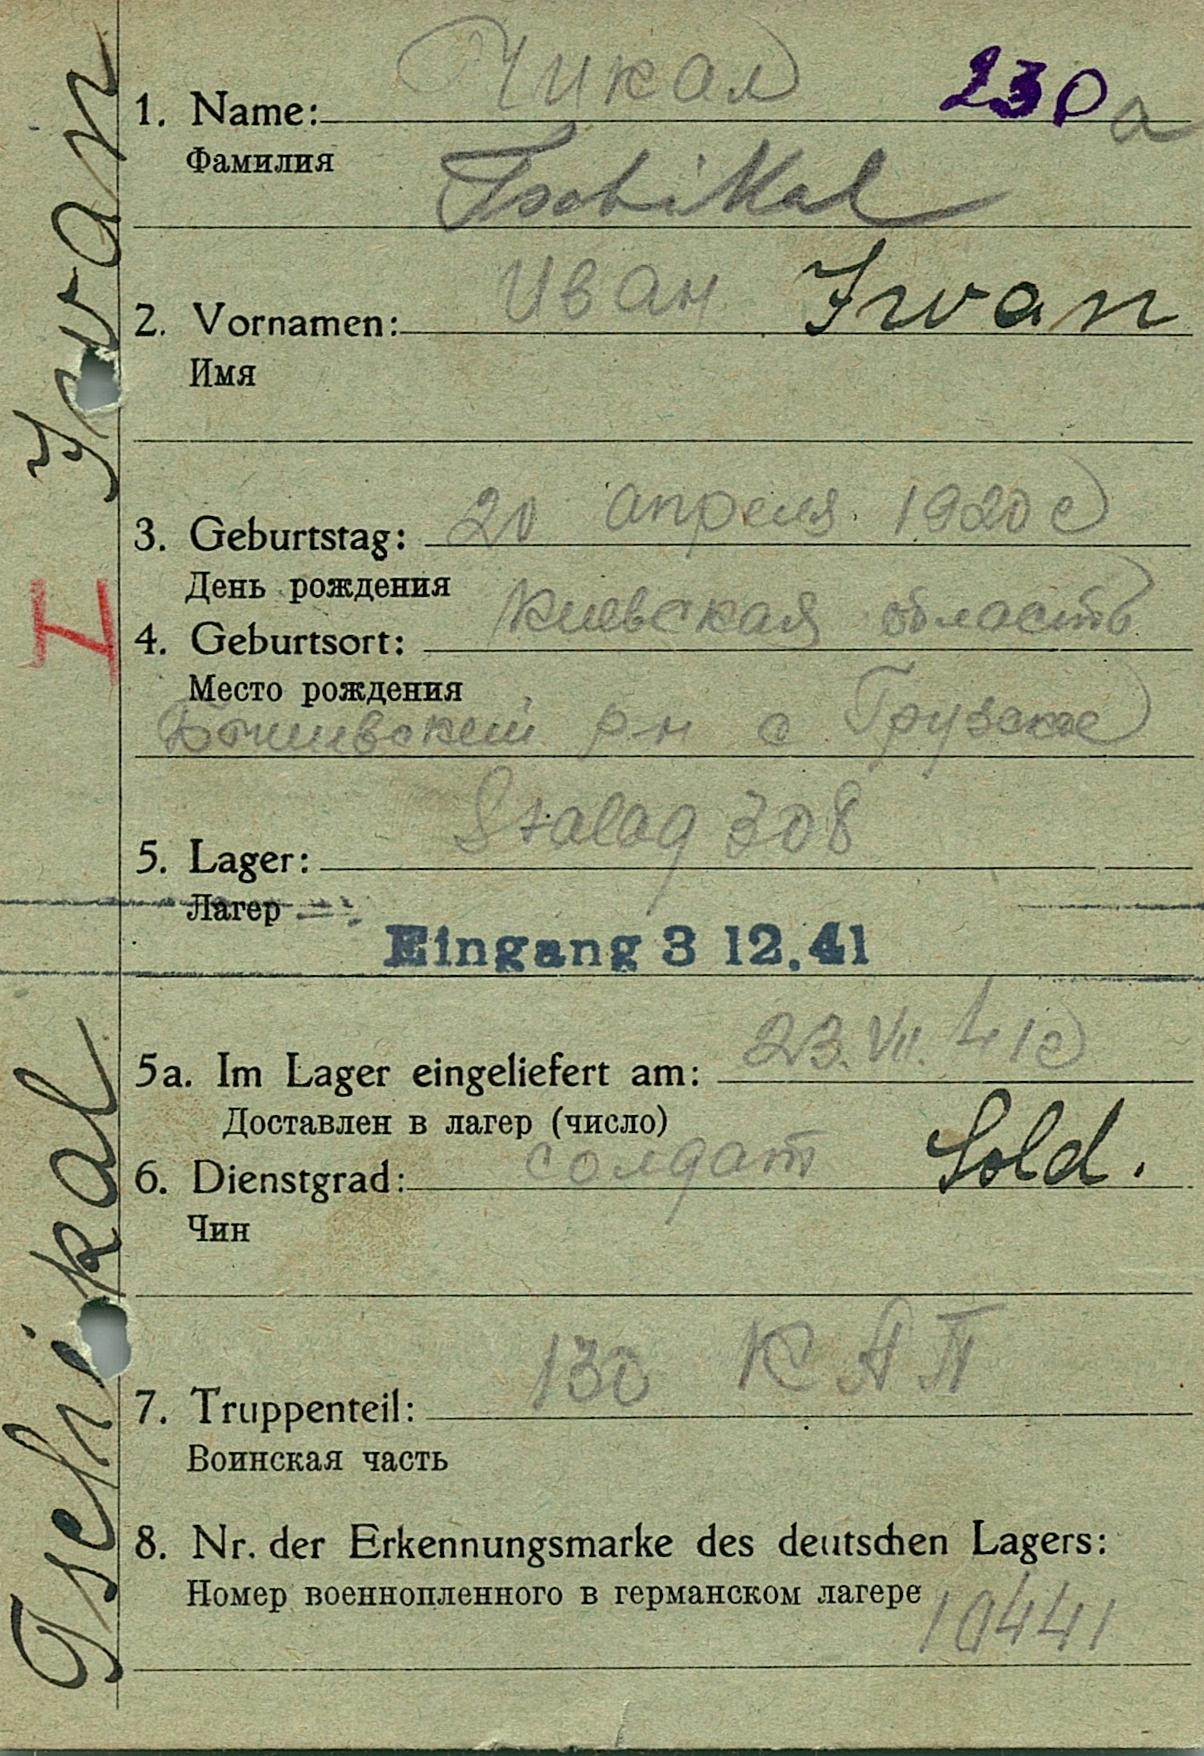 Чикал
230 а
1. Name:
Фамилия
Tschikal
2. Vornamen: Иван Iwan
Имя
3. Geburtstag: 20 апреля 1920 г
День рождения
4. Geburtsort: Киевская область
Место рождения
р-н с Грузкое
5. Lager: Stalag 308
Лагер
Eingang 3 12.41
5a. Im Lager eingeliefert am: 23. VII. 41 г
Доставлен в лагер (число)
6. Dienstgrad: солдат Sold.
Чин
7. Truppenteil: 130 КАП
Воинская часть
8. Nr. der Erkennungsmarke des deutschen Lagers:
Номер военнопленного в германском лагере 10441
Tschikal Iwan